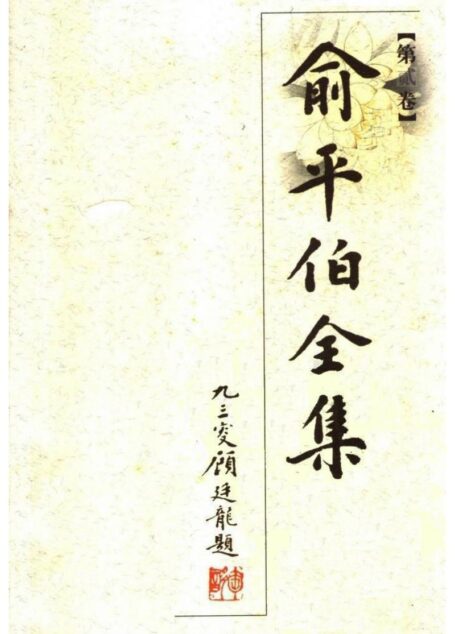 【第贰卷】
俞平伯全集
九三叟顾廷龍题